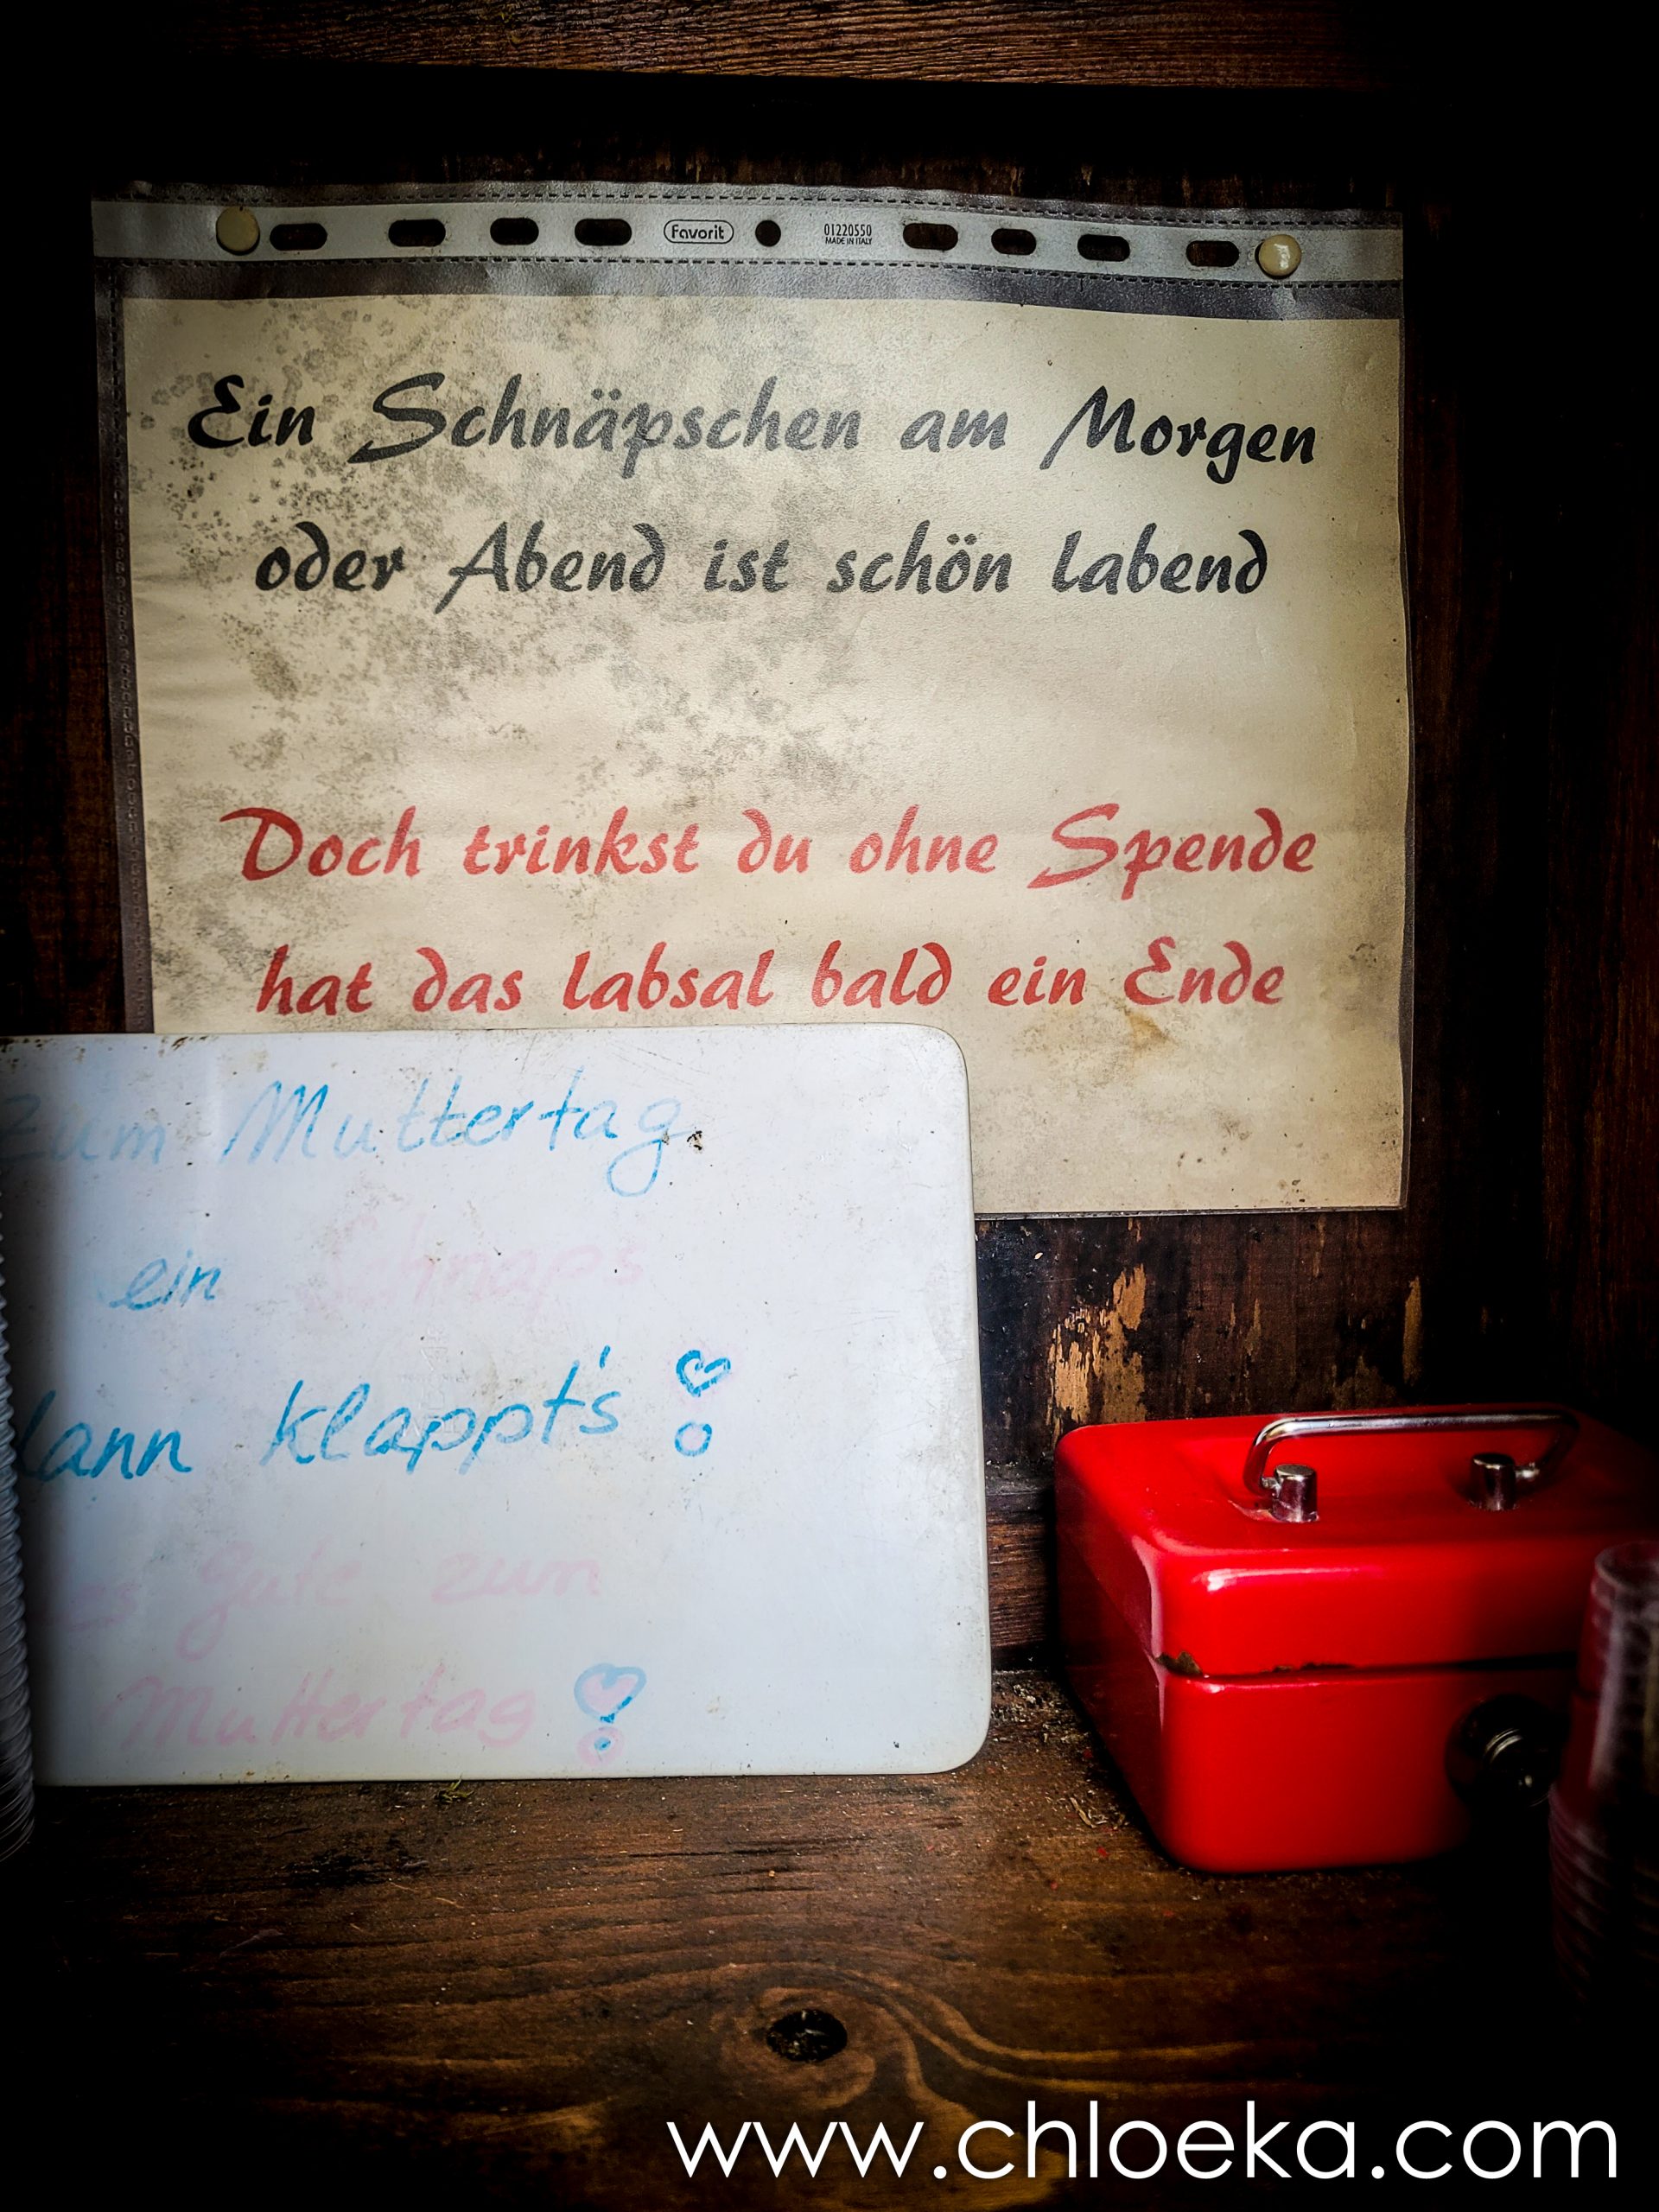 Favorit
01220550
MADE IN ITALY
Ein Schnäpschen am Morgen
oder Abend ist schön labend
Doch trinkst du ohne Spende
hat das labsal bald ein Ende
Zum Muttertag
ein Schnaps
klappt's
Gute zum
Muttertag
www.chloeka.com